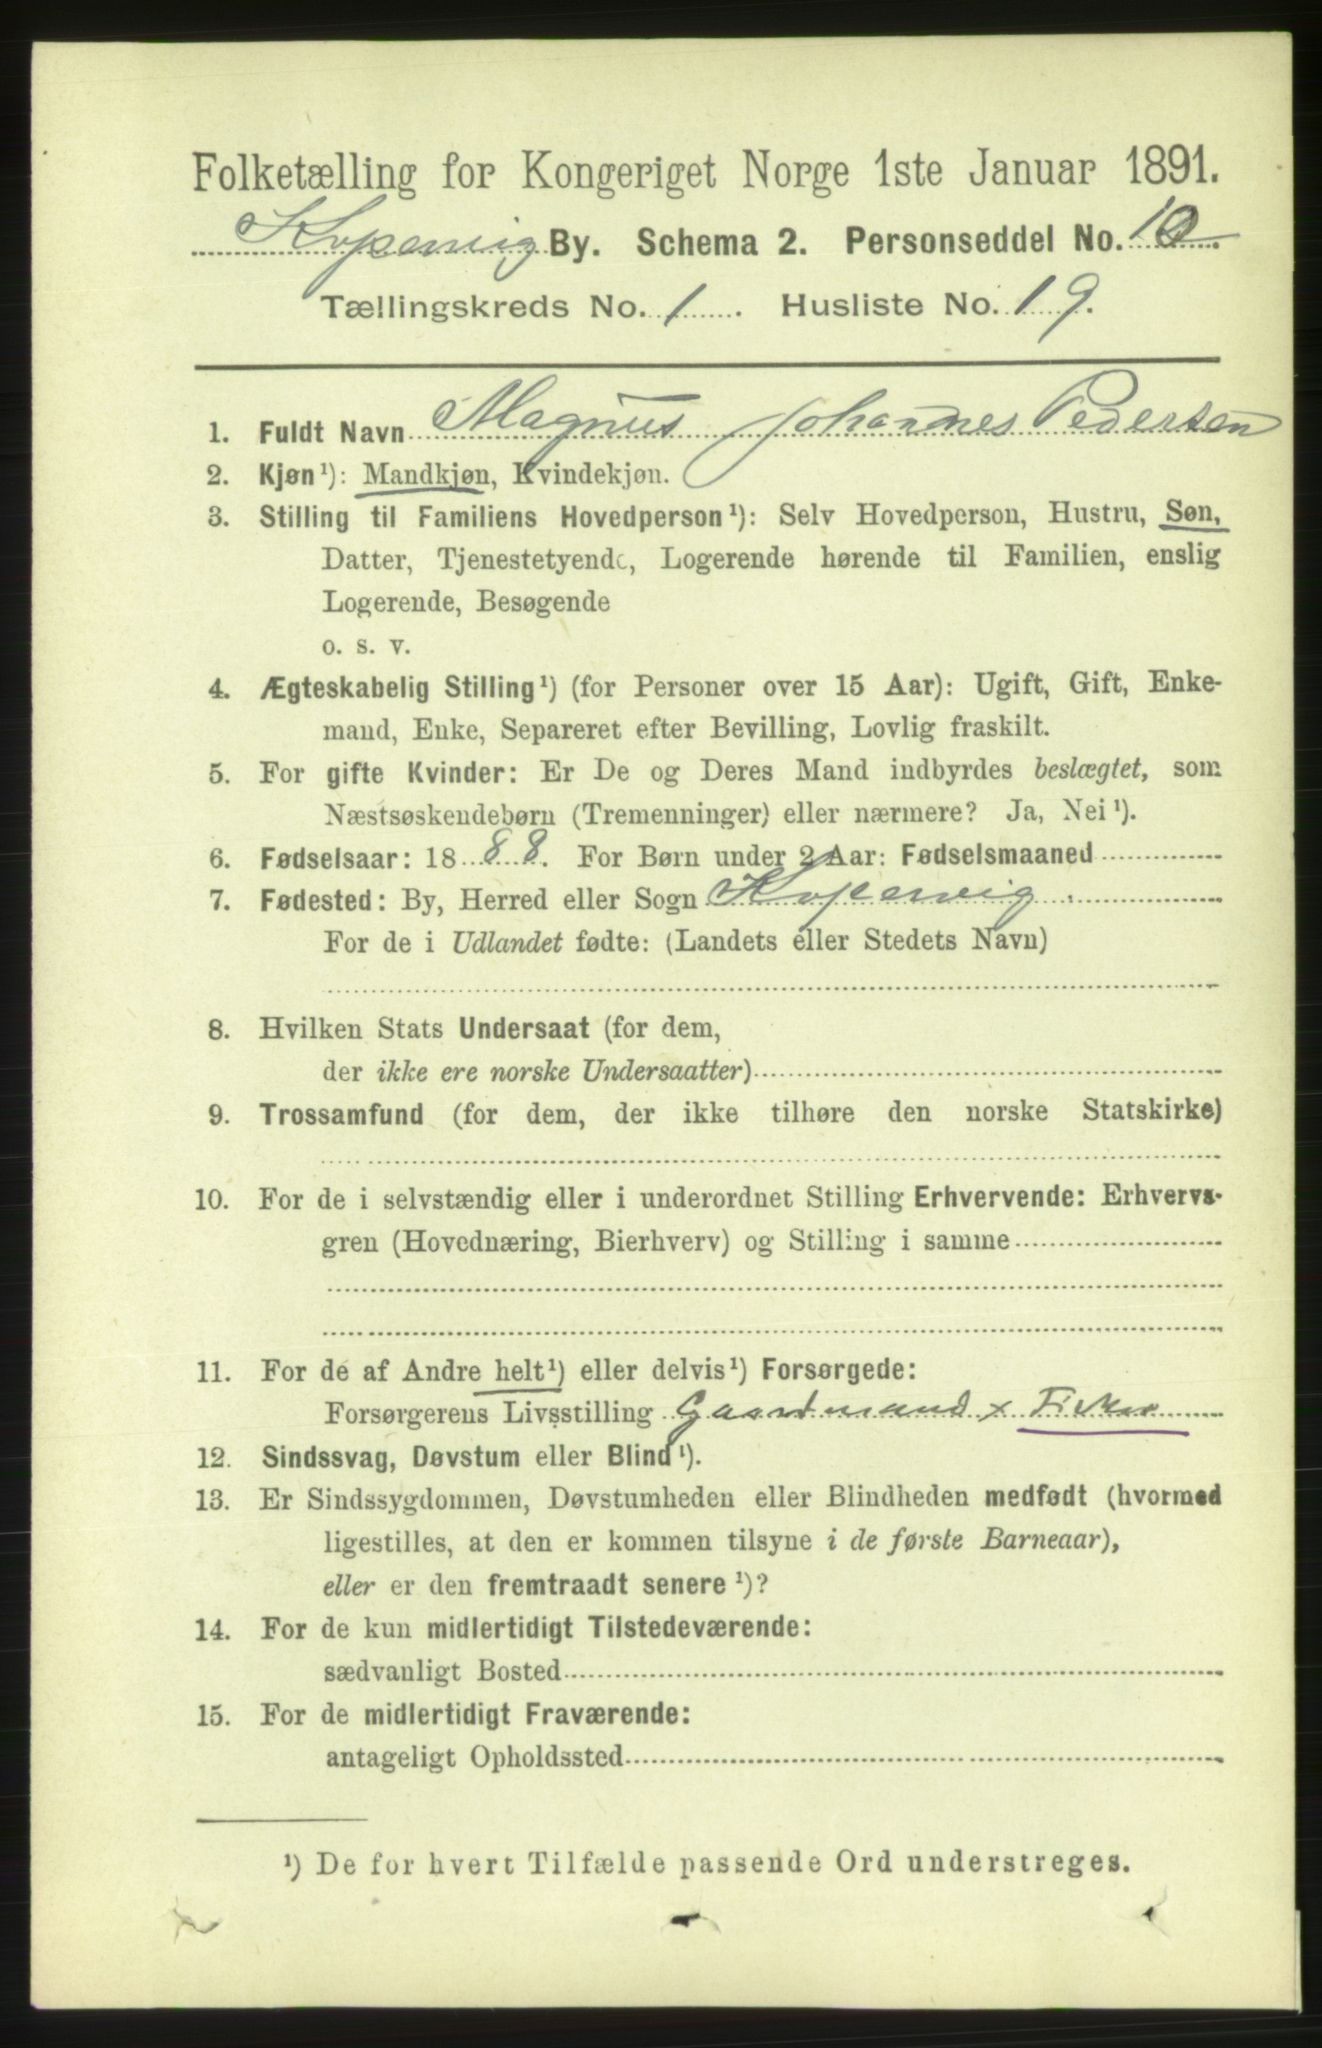 Folketælling for Kongeriget Norge 1ste Januar 1891.
Kopervig By. Schema 2. Personseddel No. 10.
Tællingskreds No. 1. Husliste No. 19.
1. Fuldt Navn Magnus Johannes Pedersen
2. Kjøn¹): Mandkjøn, Kvindekjøn.
3. Stilling til Familiens Hovedperson¹): Selv Hovedperson, Hustru, Søn,
Datter, Tjenestetyende, Logerende hørende til Familien, enslig
Logerende, Besøgende
o. s. v.
4. Ægteskabelig Stilling¹) (for Personer over 15 Aar): Ugift, Gift, Enke-
mand, Enke, Separeret efter Bevilling, Lovlig fraskilt.
5. For gifte Kvinder: Er De og Deres Mand indbyrdes beslægtet, som
Næstsøskendebørn (Tremenninger) eller nærmere? Ja, Nei¹).
6. Fødselsaar: 1888. For Børn under 2 Aar: Fødselsmaaned
7. Fødested: By, Herred eller Sogn Kopervig.
For de i Udlandet fødte: (Landets eller Stedets Navn)
8. Hvilken Stats Undersaat (for dem,
der ikke ere norske Undersaatter)
9. Trossamfund (for dem, der ikke tilhøre den norske Statskirke)
10. For de i selvstændig eller i underordnet Stilling Erhvervende: Erhvervs-
gren (Hovednæring, Bierhverv) og Stilling i samme
11. For de af Andre helt¹) eller delvis¹) Forsørgede:
Forsørgerens Livsstilling Gaardmand x Fisker
12. Sindssvag, Døvstum eller Blind¹).
13. Er Sindssygdommen, Døvstumheden eller Blindheden medfødt (hvormed
ligestilles, at den er kommen tilsyne i de første Barneaar),
eller er den fremtraadt senere¹)?
14. For de kun midlertidigt Tilstedeværende:
sædvanligt Bosted
15. For de midlertidigt Fraværende:
antageligt Opholdssted
¹) De for hvert Tilfælde passende Ord understreges.